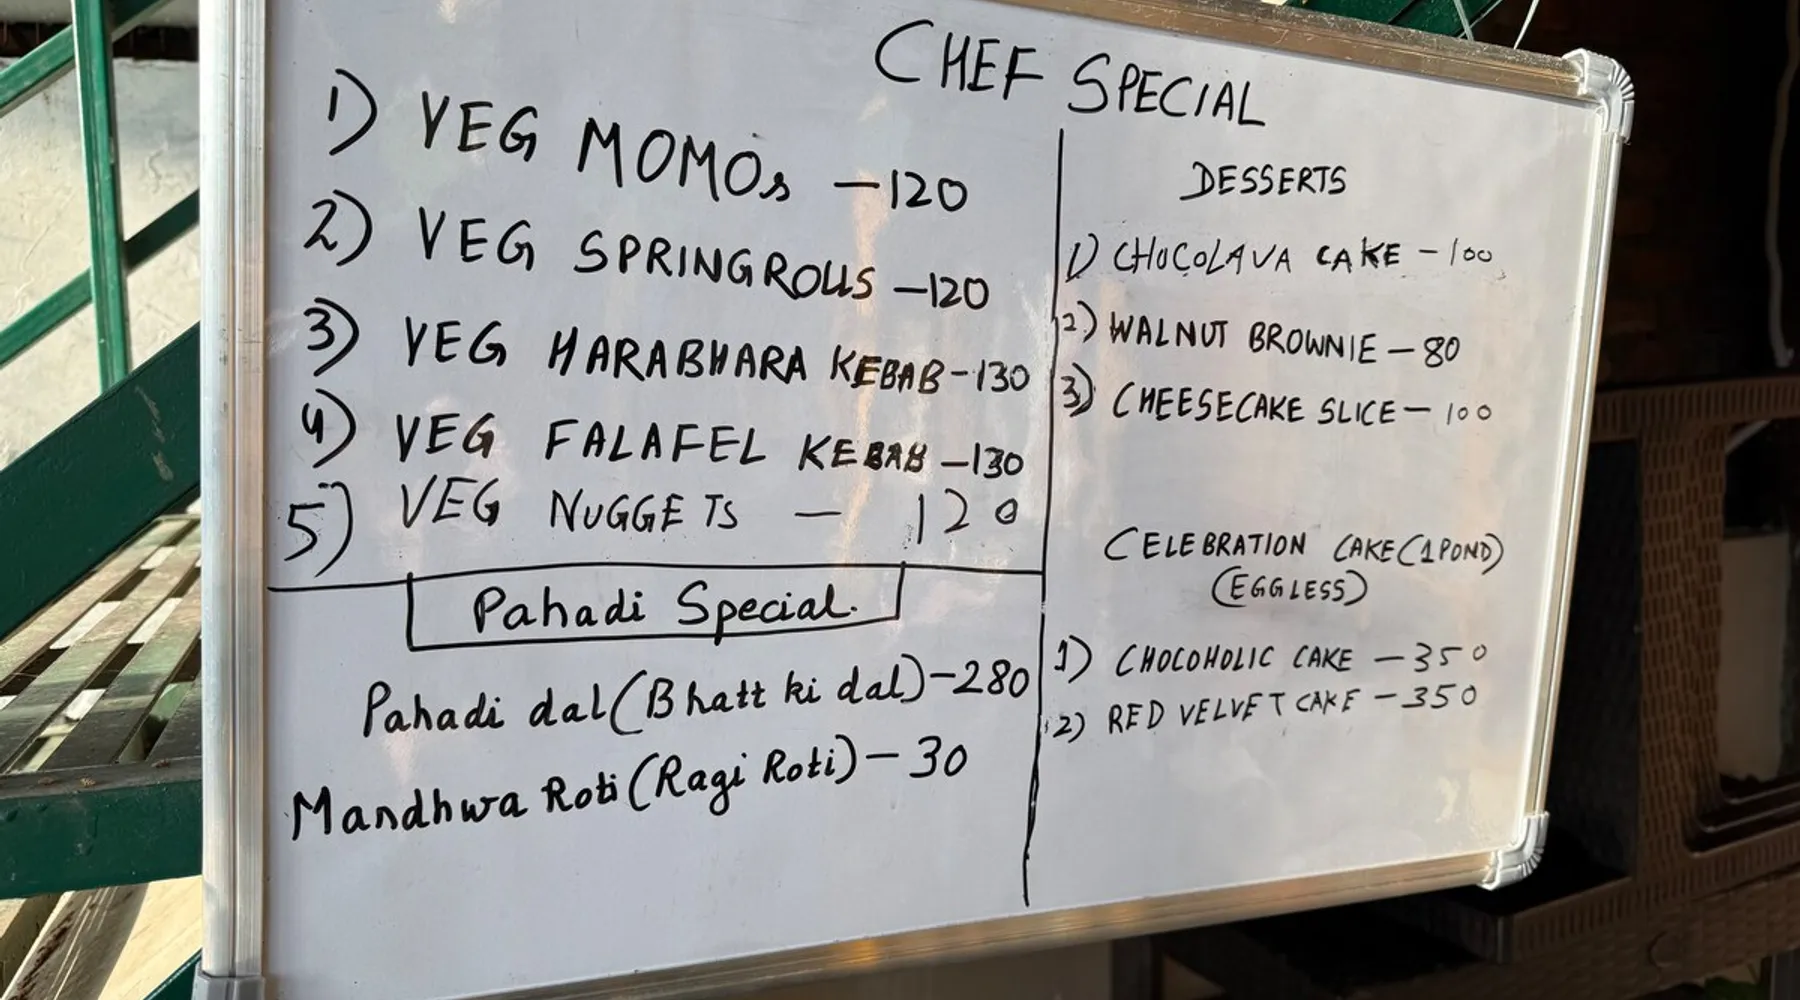 CHEF SPECIAL
1) VEG MOMOs -120
2) VEG SPRINGROLLS -120
3) VEG HARABHARA KEBAB -130
4) VEG FALAFEL KEBAB -130
5) VEG NUGGETS - 120
Pahadi Special.
Pahadi dal (Bhatt ki dal) -280
Mandhwa Roti (Ragi Roti) - 30
DESSERTS
1) CHOCOLAVA CAKE - 100
2) WALNUT BROWNIE - 80
3) CHEESECAKE SLICE - 100
CELEBRATION CAKE (1 POND)
(EGGLESS)
1) CHOCOHOLIC CAKE - 350
2) RED VELVET CAKE - 350